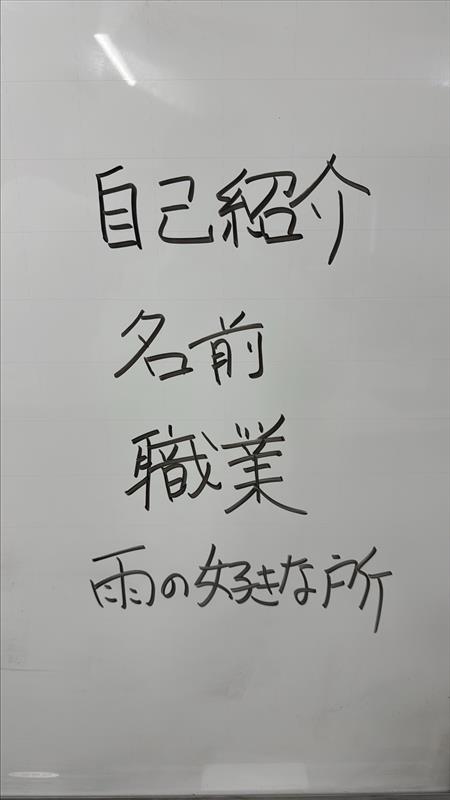 自己紹介
名前
職業
雨の好きな所